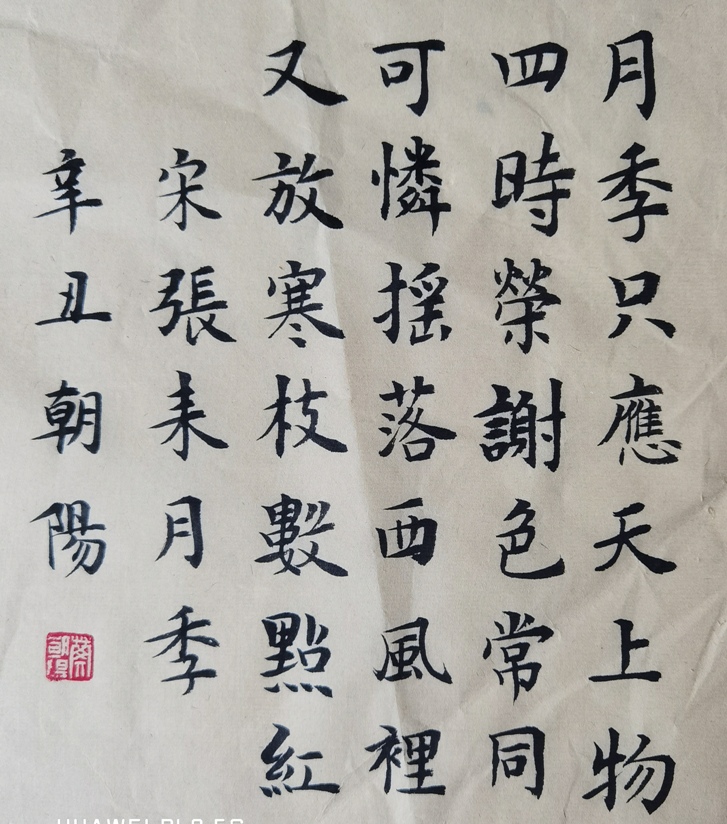 月季只應天上物
四時榮謝色常同
可憐摇落西風裡
又放寒枝數點紅
宋張耒月季
辛丑朝陽